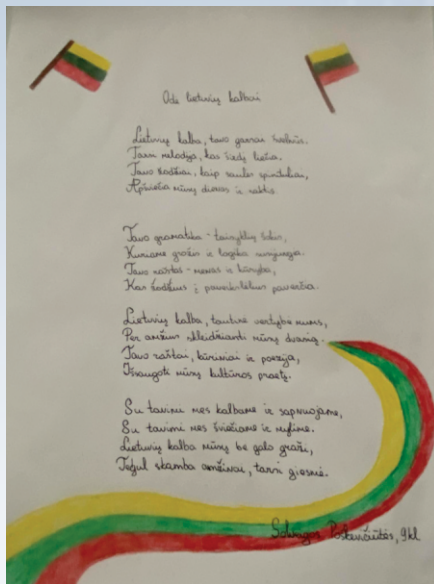 Odė lietuvių kalbai
Lietuvių kalba, tavo garsai švelnūs.
Tarsi melodija, kas širdį liečia.
Tavo žodžiai, kaip saulės spinduliai,
Apšviečia mūsų dienas ir naktis.
Tavo gramatika - taisyklių šokis,
Kuriame grožis ir logika susijungia.
Tavo raštas - menas ir kūryba,
Kas žodžius į paveikslėlius paverčia.
Lietuvių kalba, tautinė vertybė mums,
Per amžius skleidžianti mūsų dvasią.
Tavo raštai, kūriniai ir poezija,
Išsaugoti mūsų kultūros praeitį.
Su tavimi mes kalbame ir sapnuojame,
Su tavimi mes šviečiame ir mylime.
Lietuvių kalba mūsų be galo graži,
Tegul skamba amžinai, tarsi giesmė.
Solveigos 9 kl.